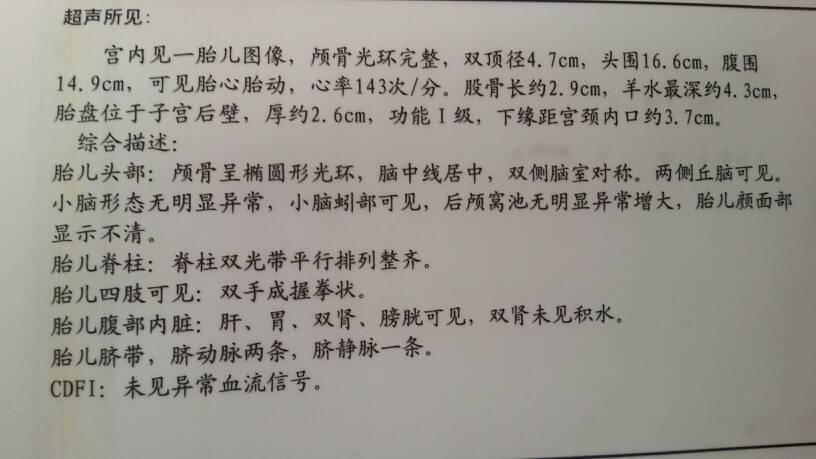 超声所见：
宫内见一胎儿图像，颅骨光环完整，双顶径4.7cm，头围16.6cm，腹围
14.9cm，可见胎心胎动，心率143次/分。股骨长约2.9cm，羊水最深约4.3cm，
胎盘位于子宫后壁，厚约2.6cm，功能Ⅰ级，下缘距宫颈内口约3.7cm。
综合描述：
胎儿头部：颅骨呈椭圆形光环，脑中线居中，双侧脑室对称。两侧丘脑可见。
小脑形态无明显异常，小脑蚓部可见，后颅窝池无明显异常增大，胎儿颜面部
显示不清。
胎儿脊柱：脊柱双光带平行排列整齐。
胎儿四肢可见：双手成握拳状。
胎儿腹部内脏：肝、胃、双肾、膀胱可见，双肾未见积水。
胎儿脐带，脐动脉两条，脐静脉一条。
CDFI：未见异常血流信号。